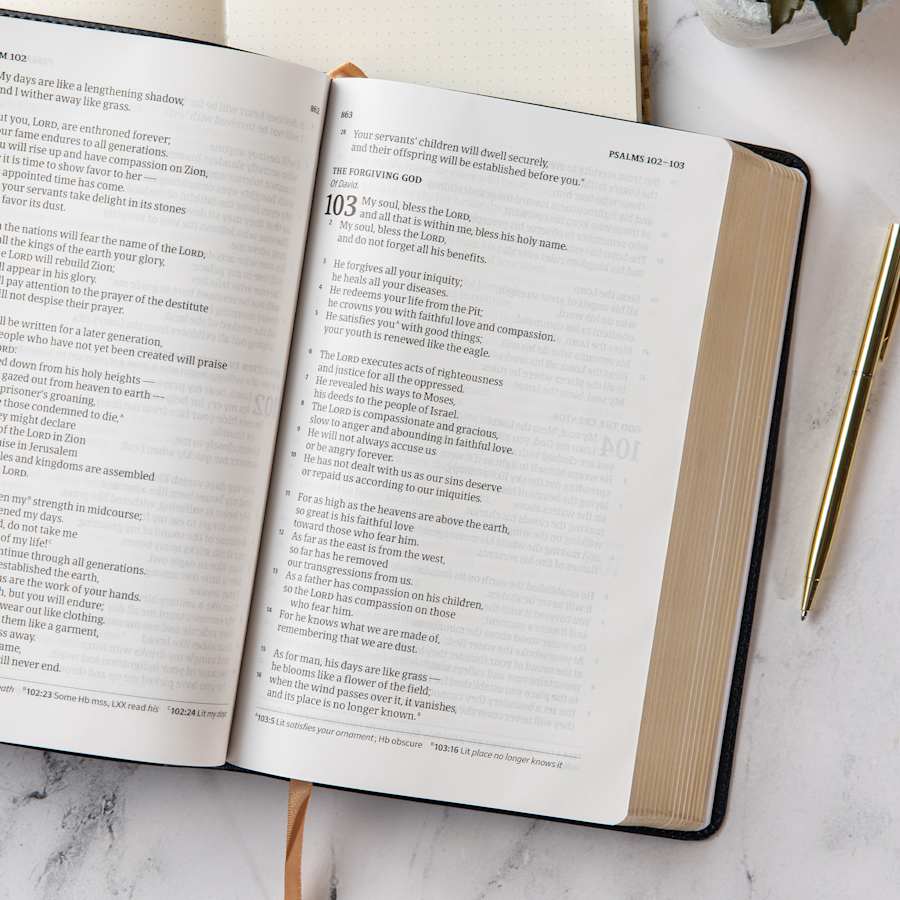 M 102
862
My days are like a lengthening shadow,
nd I wither away like grass.
ut you, LORD, are enthroned forever;
our fame endures to all generations.
u will rise up and have compassion on Zion,
r it is time to show favor to her —
appointed time has come.
your servants take delight in its stones
favor its dust.
n the nations will fear the name of the LORD,
all the kings of the earth your glory,
e LORD will rebuild Zion;
ll appear in his glory.
ll pay attention to the prayer of the destitute
ill not despise their prayer.
ll be written for a later generation,
eople who have not yet been created will praise
ORD:
ed down from his holy heights —
gazed out from heaven to earth —
prisoner's groaning,
e those condemned to die,
ey might declare
of the LORD in Zion
aise in Jerusalem
les and kingdoms are assembled
LORD.
en my strength in midcourse;
ened my days.
d, do not take me
of my life!
ntinue through all generations.
established the earth,
ns are the work of your hands.
h, but you will endure;
wear out like clothing.
them like a garment,
ss away.
ame,
ill never end.
eath B102:23 Some Hb mss, LXX read his C102:24 Lit my days
863
PSALMS 102–103
28 Your servants' children will dwell securely,
and their offspring will be established before you."
THE FORGIVING GOD
Of David.
103 My soul, bless the LORD,
and all that is within me, bless his holy name.
2 My soul, bless the LORD,
and do not forget all his benefits.
3 He forgives all your iniquity;
he heals all your diseases.
4 He redeems your life from the Pit;
he crowns you with faithful love and compassion.
5 He satisfies youA with good things;
your youth is renewed like the eagle.
6 The LORD executes acts of righteousness
and justice for all the oppressed.
7 He revealed his ways to Moses,
his deeds to the people of Israel.
8 The LORD is compassionate and gracious,
slow to anger and abounding in faithful love.
9 He will not always accuse us
or be angry forever.
10 He has not dealt with us as our sins deserve
or repaid us according to our iniquities.
11 For as high as the heavens are above the earth,
so great is his faithful love
toward those who fear him.
12 As far as the east is from the west,
so far has he removed
our transgressions from us.
13 As a father has compassion on his children,
so the LORD has compassion on those
who fear him.
14 For he knows what we are made of,
remembering that we are dust.
15 As for man, his days are like grass —
he blooms like a flower of the field;
16 when the wind passes over it, it vanishes,
and its place is no longer known.B
A103:5 Lit satisfies your ornament; Hb obscure B103:16 Lit place no longer knows it